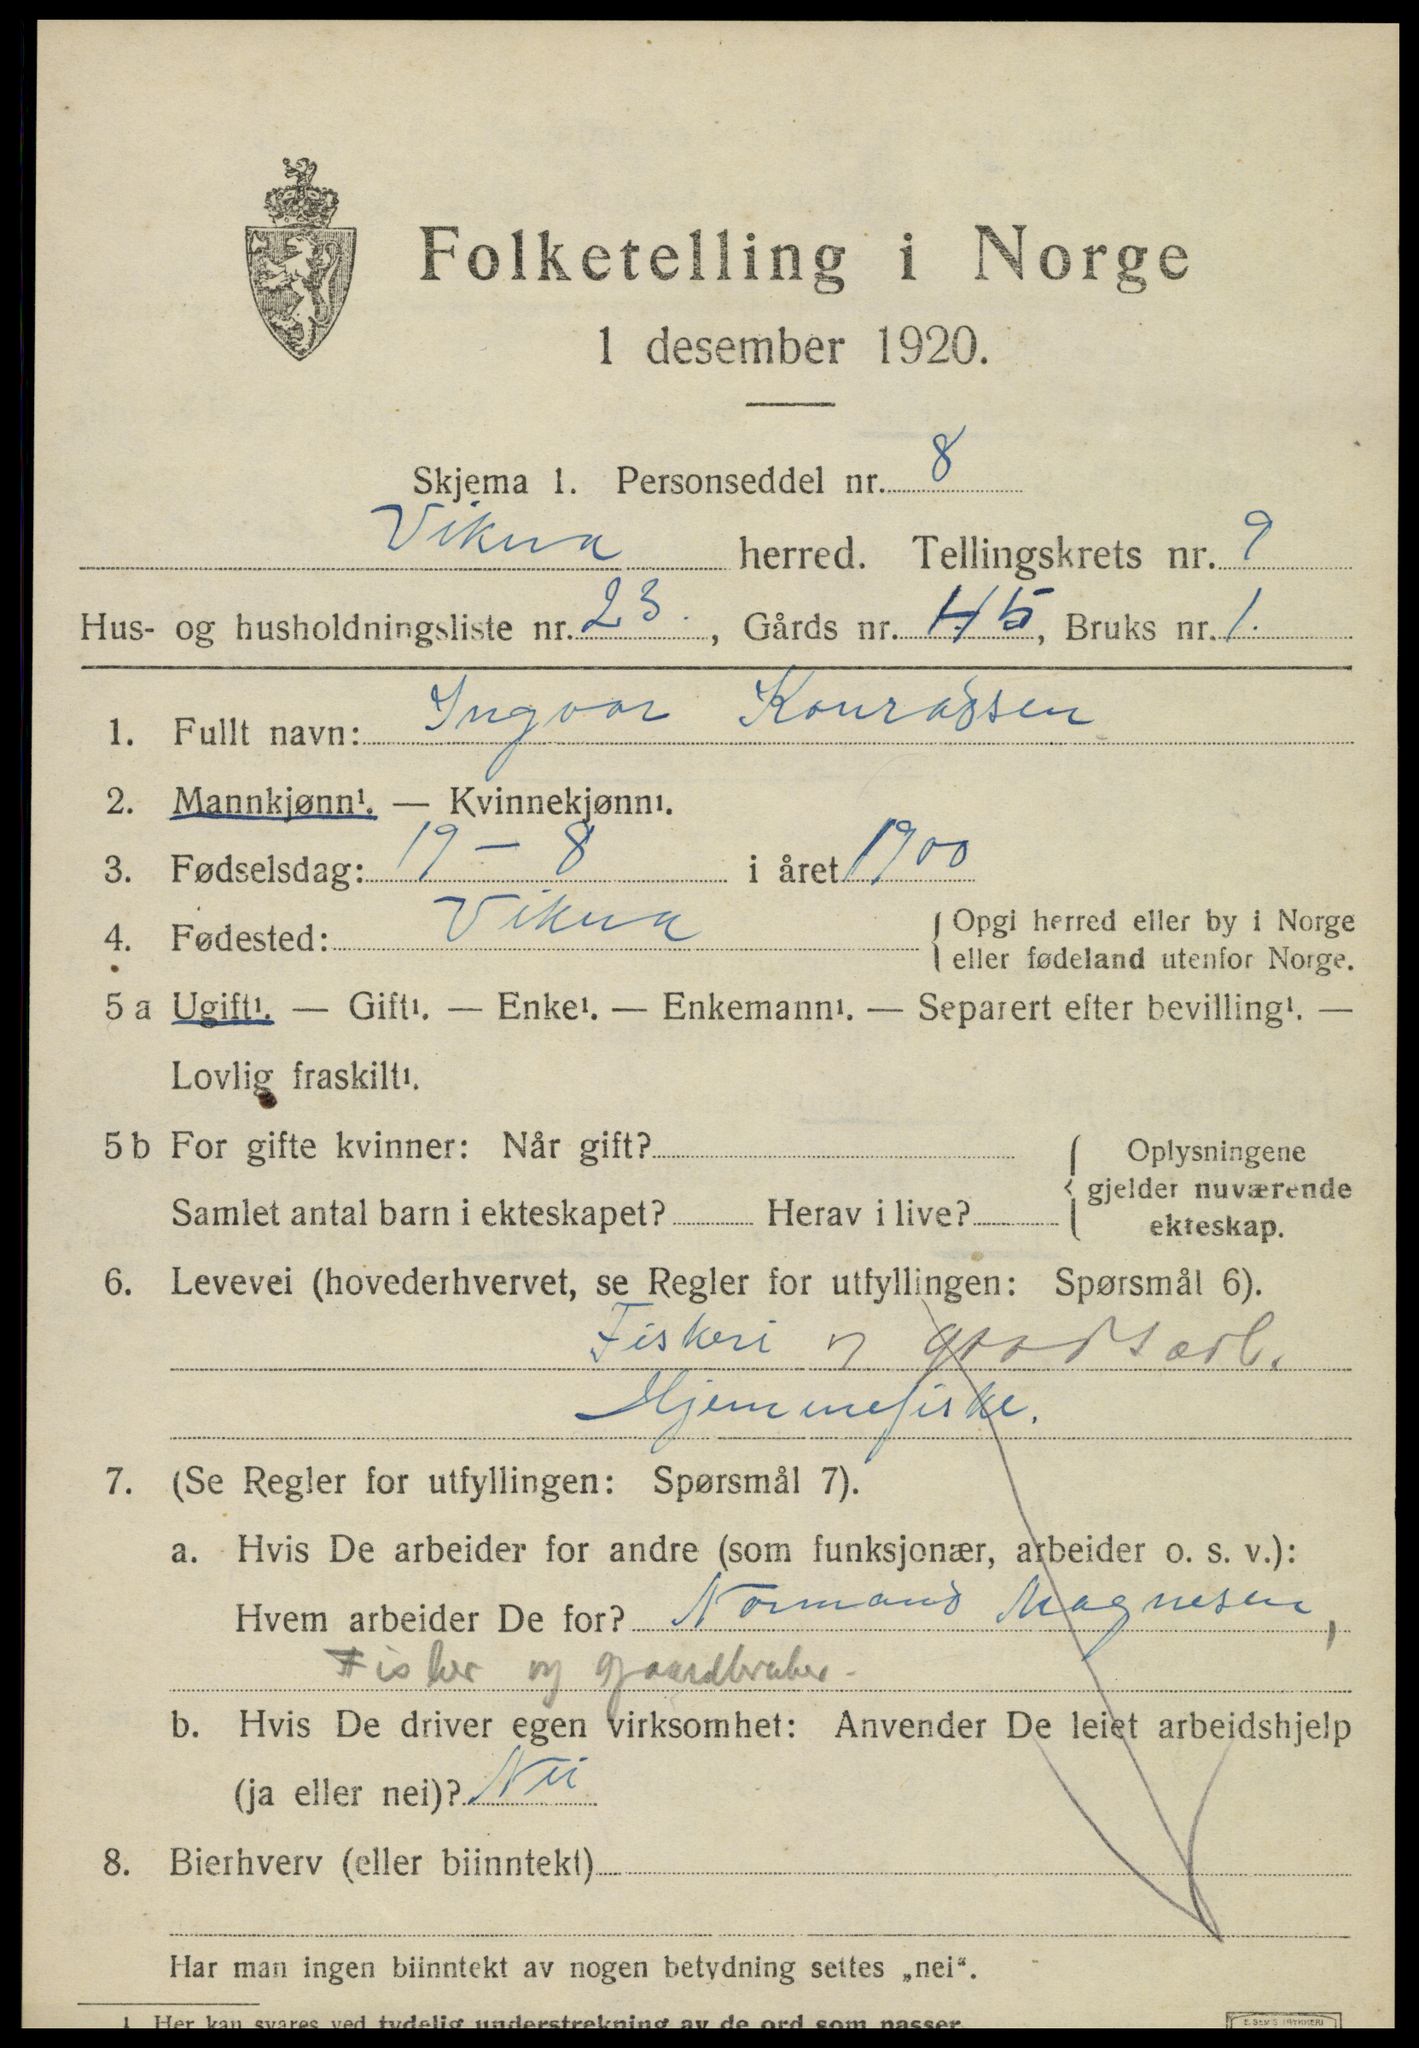 Folketelling i Norge
1 desember 1920.
Skjema 1. Personseddel nr. 8
Vikna herred. Tellingskrets nr. 9
Hus- og husholdningsliste nr. 23. , Gårds nr. 45, Bruks nr. 1.
1. Fullt navn: Ingvar Konradsen
2. Mannkjønn¹. — Kvinnekjønn¹.
3. Fødselsdag: 19 – 8 i året 1900
4. Fødested: Vikna { Opgi herred eller by i Norge
eller fødeland utenfor Norge.
5 a Ugift¹. — Gift¹. — Enke¹. — Enkemann¹. — Separert efter bevilling¹. —
Lovlig fraskilt¹.
5 b For gifte kvinner: Når gift? { Oplysningene
gjelder nuværende
Samlet antal barn i ekteskapet? Herav i live? ekteskap.
6. Levevei (hovederhvervet, se Regler for utfyllingen: Spørsmål 6).
Fiskeri og gaardsarb.
Hjemmefiske.
7. (Se Regler for utfyllingen: Spørsmål 7).
a. Hvis De arbeider for andre (som funksjonær, arbeider o. s. v.):
Hvem arbeider De for? Normand Magnesen,
Fisker og gaardbruker.
b. Hvis De driver egen virksomhet: Anvender De leiet arbeidshjelp
(ja eller nei)? Nei
8. Bierhverv (eller biinntekt)
Har man ingen biinntekt av nogen betydning settes „nei“.
1 Her kan svares ved tydelig understrekning av de ord som passer.